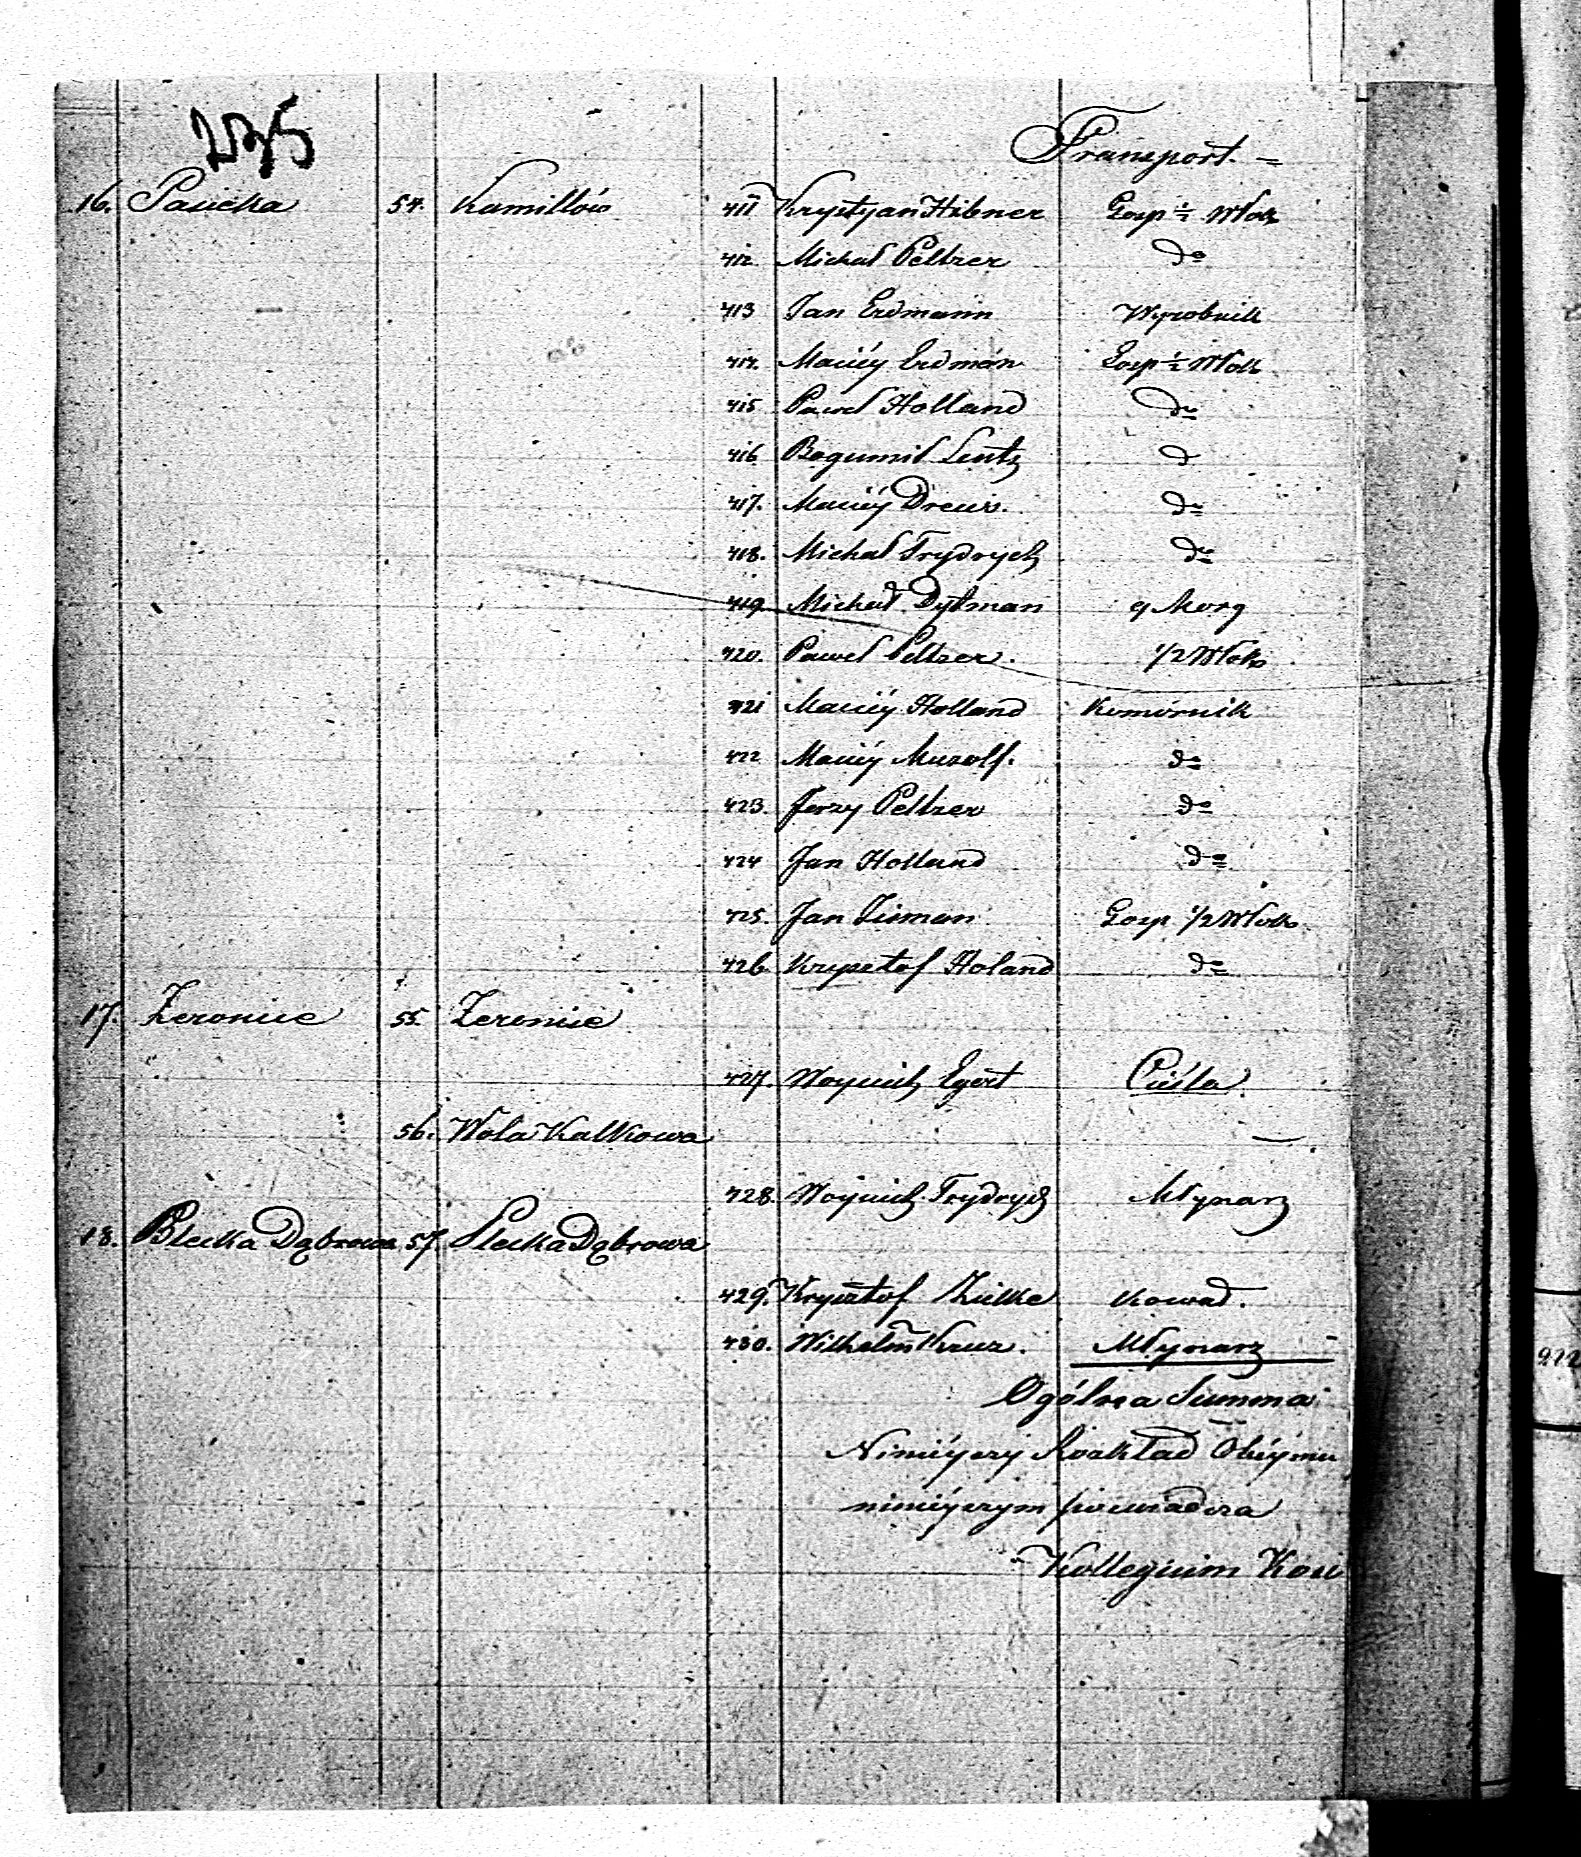 235
Transport. =
16. Pasieka 54. Kamillów 411 Krystyan Hibner Gosp ½ Włok
412 Michał Peltzer do
413 Jan Erdmann Wyrobnik
414. Maciéy Erdman Gosp ½ Włok
415 Paweł Holland do
416 Bogumił Lentz d
417. Maciéy Drews. do
418. Michał Frydrych do
419 Michał Dytman 9 Morg
420. Paweł Peltzer. 1/2 Włoki
421 Maciéy Holland Komornik
422 Maciéy Muzolf. do
423. Jerzy Peltzer do
424 Jan Holland do
425. Jan Gosp 1/2 Włok
426 Krysztof Holand do
17. Zeronice 55. Zeronice
427. Woyciech Egert Cieśla.
56. Wola Kalkowa
428. Woyciech Frydrych Młynarz
18. Plecka Dąbrowa 57. Plecka Dąbrowa
429. Krysztof Zielke Kowal.
430. Wilhelm Młynarz
Ogólna Summa
Ninieyszy Rozkład
ninieyszym poswiadcza
Kollegium Kosc
922